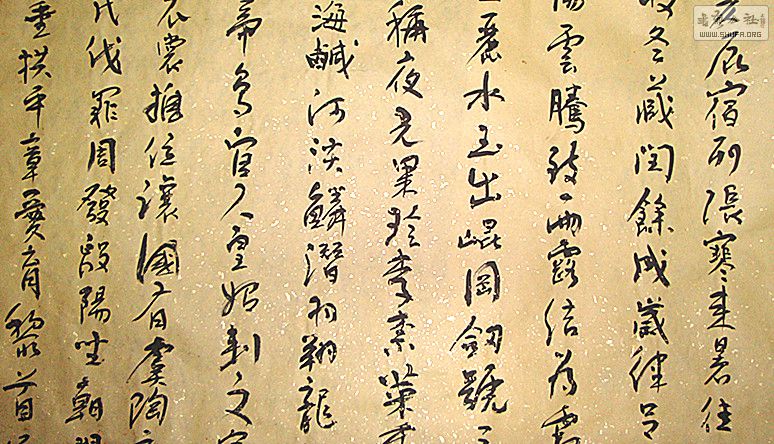 辰宿列張寒来暑往
收冬藏閏餘成歲律吕
陽雲騰致雨露結為霜
麗水玉出崐岡劔號
稱夜光果珍李柰菜重
海鹹河淡鱗潛羽翔龍
帝鳥官人皇始制文字
衣裳推位讓國有虞陶
民伐罪周發殷陽坐朝問
垂拱平章愛育黎首臣
WWW.SHUFA.ORG